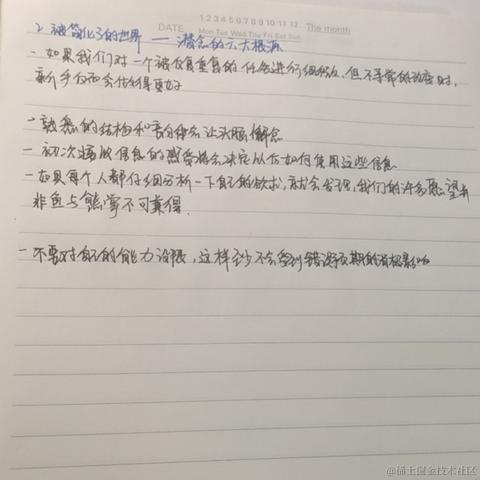 1 2 3 4 5 6 7 8 9 10 11 12 The month
DATE Mon Tue Wed Thu Fri Sat Sun
2. 被简化了的世界 —— 潜念的六大根源
- 如果我们对一个被反复重复的任务进行细微,但不寻常的改变时,
新手反而会做得更好
- 熟悉的结构和韵律会让头脑懈怠
- 初次接收信息的感受将会决定以后如何使用这些信息
- 如果每个人都仔细分析一下自己的欲求,就会发现,我们的许多愿望并
非鱼与熊掌不可兼得.
- 不要对自己的能力设限,这样至少不会受到错误预期的消极影响
@稀土掘金技术社区